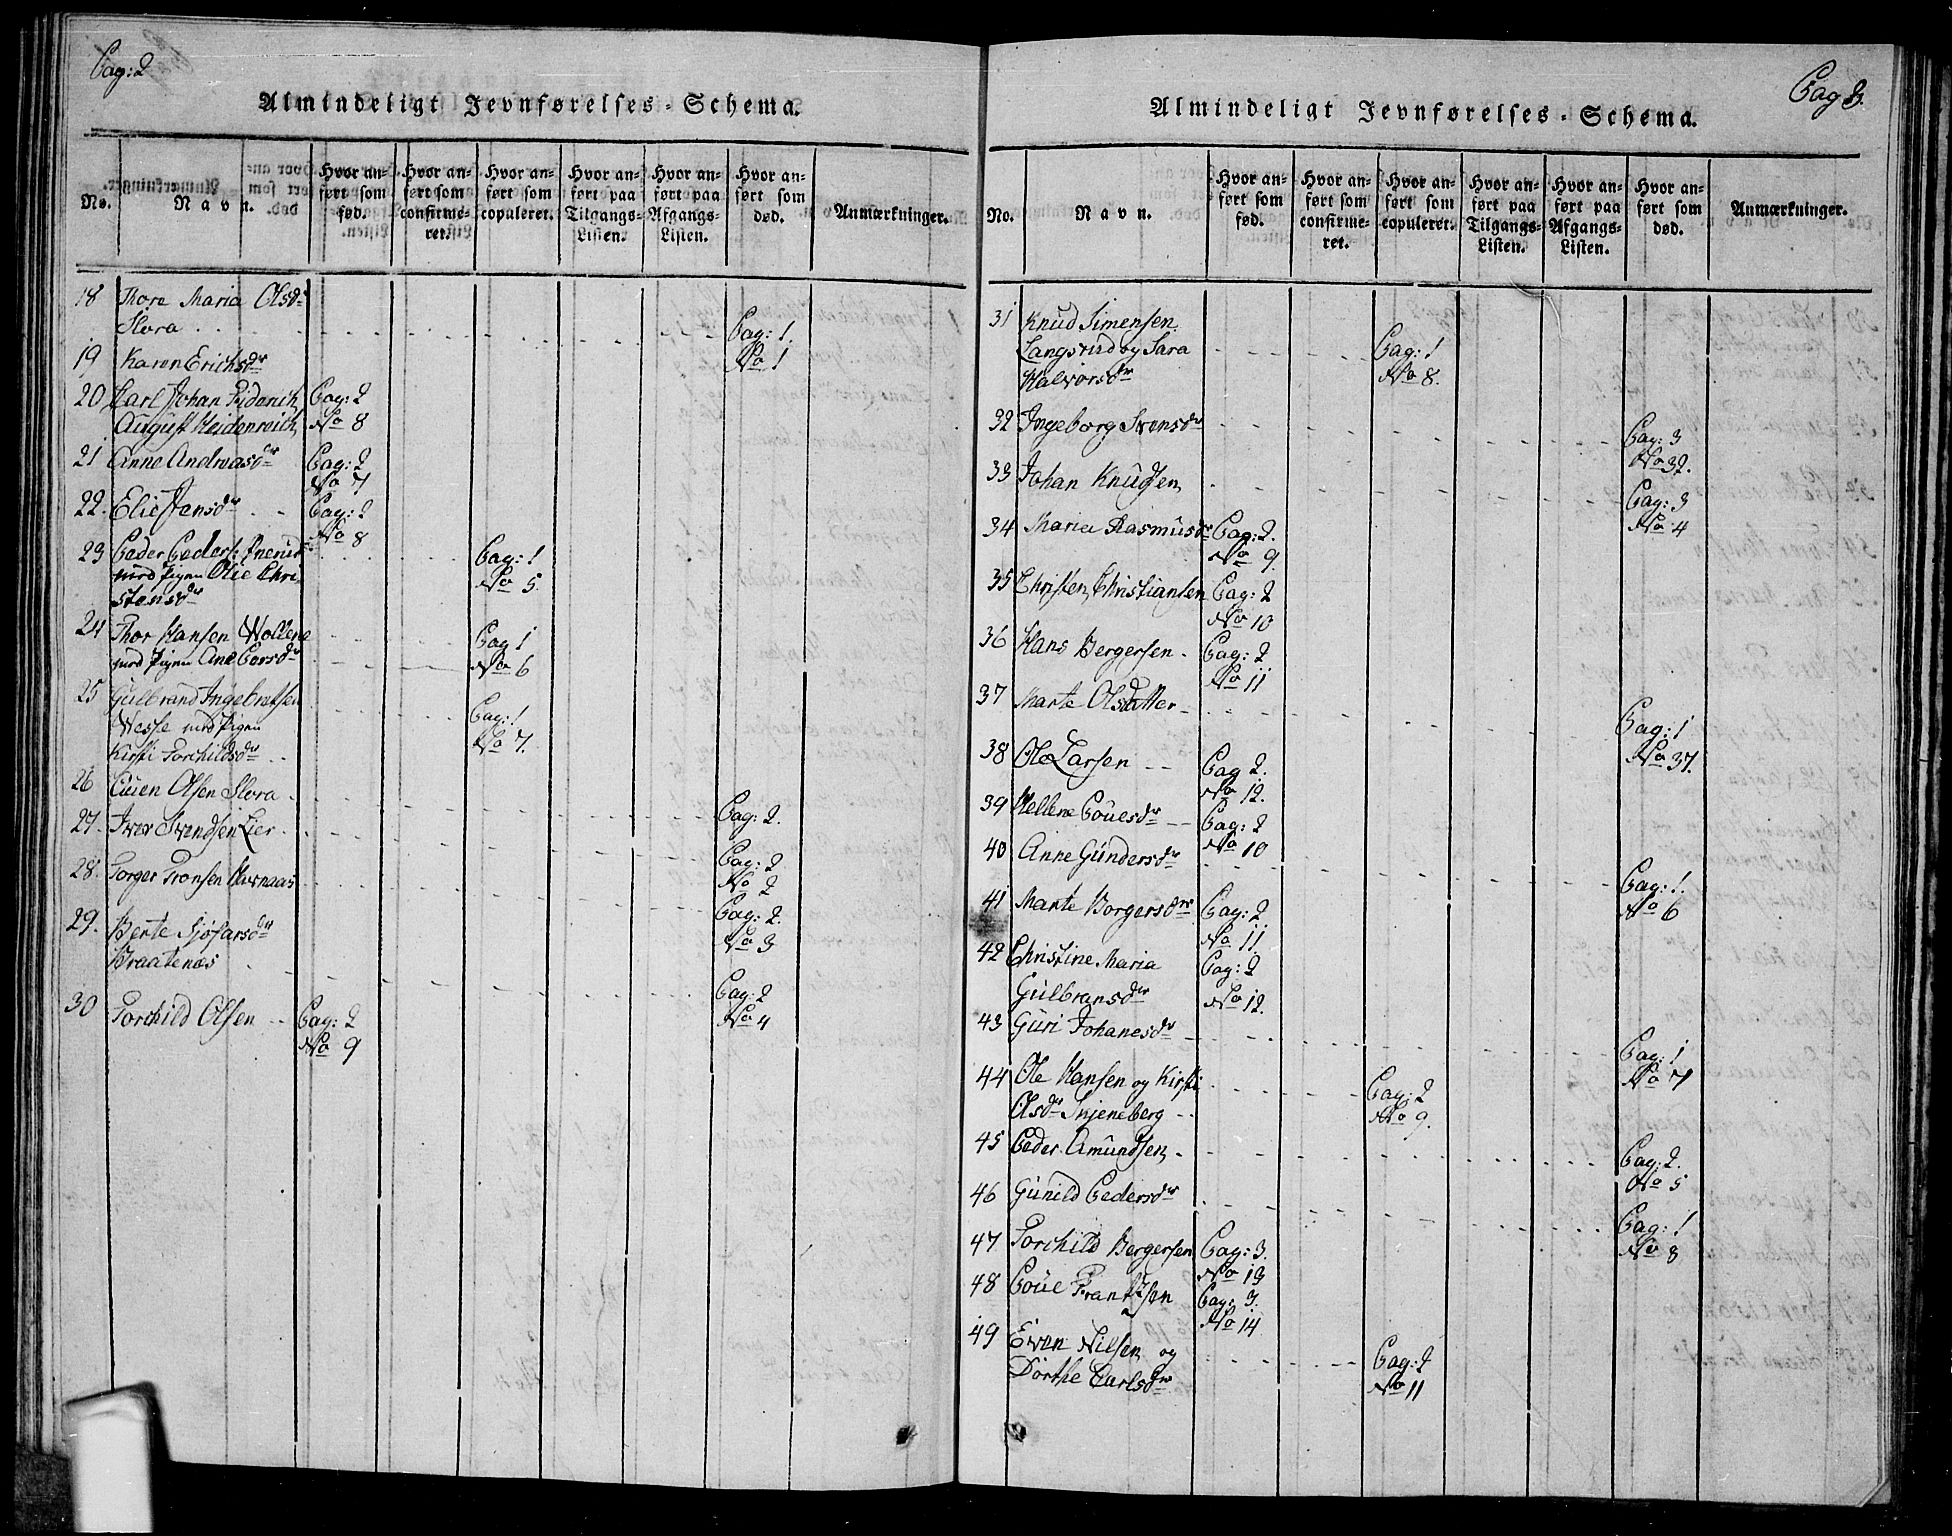 Pag: 2
Almindeligt Jevnførelses-Schema.
No.
Navn.
Hvor an-
ført som
fød.
Hvor an-
ført som
confirme-
ret.
Hvor an-
ført som
copuleret.
Hvor an-
ført paa
Tilgangs-
Listen.
Hvor an-
ført paa
Afgangs-
Listen.
Hvor an-
ført som
død.
Anmærkninger.
18 Thore Maria Olsdr
Slora . . . Pag: 1.
19 Karen Erichsdr No 1
20 Carl Johan Friderich Pag: 2
August Heidenreich No 8
21 Anne Andreasdr Pag: 2
No 7
22. Elie Jansdr Pag: 2
No 8
23 Peder Peders: Pag: 1
med Pigen Olie Chri- No 5.
stensdr
24 Thor Hansen Pag 1
med Pigen Ane Larsdr No 6
25 Gulbrand Ingebretsen
Wesse med Pigen Pag: 1
Kirsti Torchildsdr No 7.
26 Even Olsen Slora Pag: 2.
27. Iver Svendsen Lier Pag: 2
No 2
28. Torger Tronsen Pag: 2.
No 3
29. Berte Sjøfarsdr
Braatenæs Pag: 2
No 4
30 Torchild Olsen Pag: 2
No 9
Pag 3.
Almindeligt Jevnførelses-Schema.
No.
Navn.
Hvor an-
ført som
fød.
Hvor an-
ført som
confirme-
ret.
Hvor an-
ført som
copuleret.
Hvor an-
ført paa
Tilgangs-
Listen.
Hvor an-
ført paa
Afgangs-
Listen.
Hvor an-
ført som
død.
Anmærkninger.
31 Knud Simensen
Langsrud og Sara Pag: 1
Halvorsdr No 8.
32 Ingeborg Svensdr Pag: 3
No 32.
33 Johan Knudsen Pag: 3
No 4
34 Maria Rasmusdr Pag: 2.
No 9.
35 Christen Christiansen Pag: 2
No 10
36 Hans Bergersen Pag: 2
No 11
37 Marte Olsdatter Pag: 1
No 37.
38 Ole Larsen Pag 2.
No 12.
39 Hellene Pouelsdr Pag: 2
No 10
40 Anne Gundersdr Pag: 1.
No 6
41 Marte Borgersdr Pag: 2
No 11.
42 Christine Maria Pag: 2
Gulbransdr No 12.
43 Guri Johanesdr Pag: 1
No 7
44 Ole Hansen og Kirsti Pag: 2
Olsdr Snjeneberg No 9.
45 Peder Amundsen Pag: 2.
No 5
46 Gunild Pedersdr Pag: 1
No 8
47 Torchild Bergersen Pag: 3.
No 13
48 Poúe Frantzsen Pag: 3.
No 14
49 Even Nilsen og Pag: 2
Dorthe Carlsdr No 11